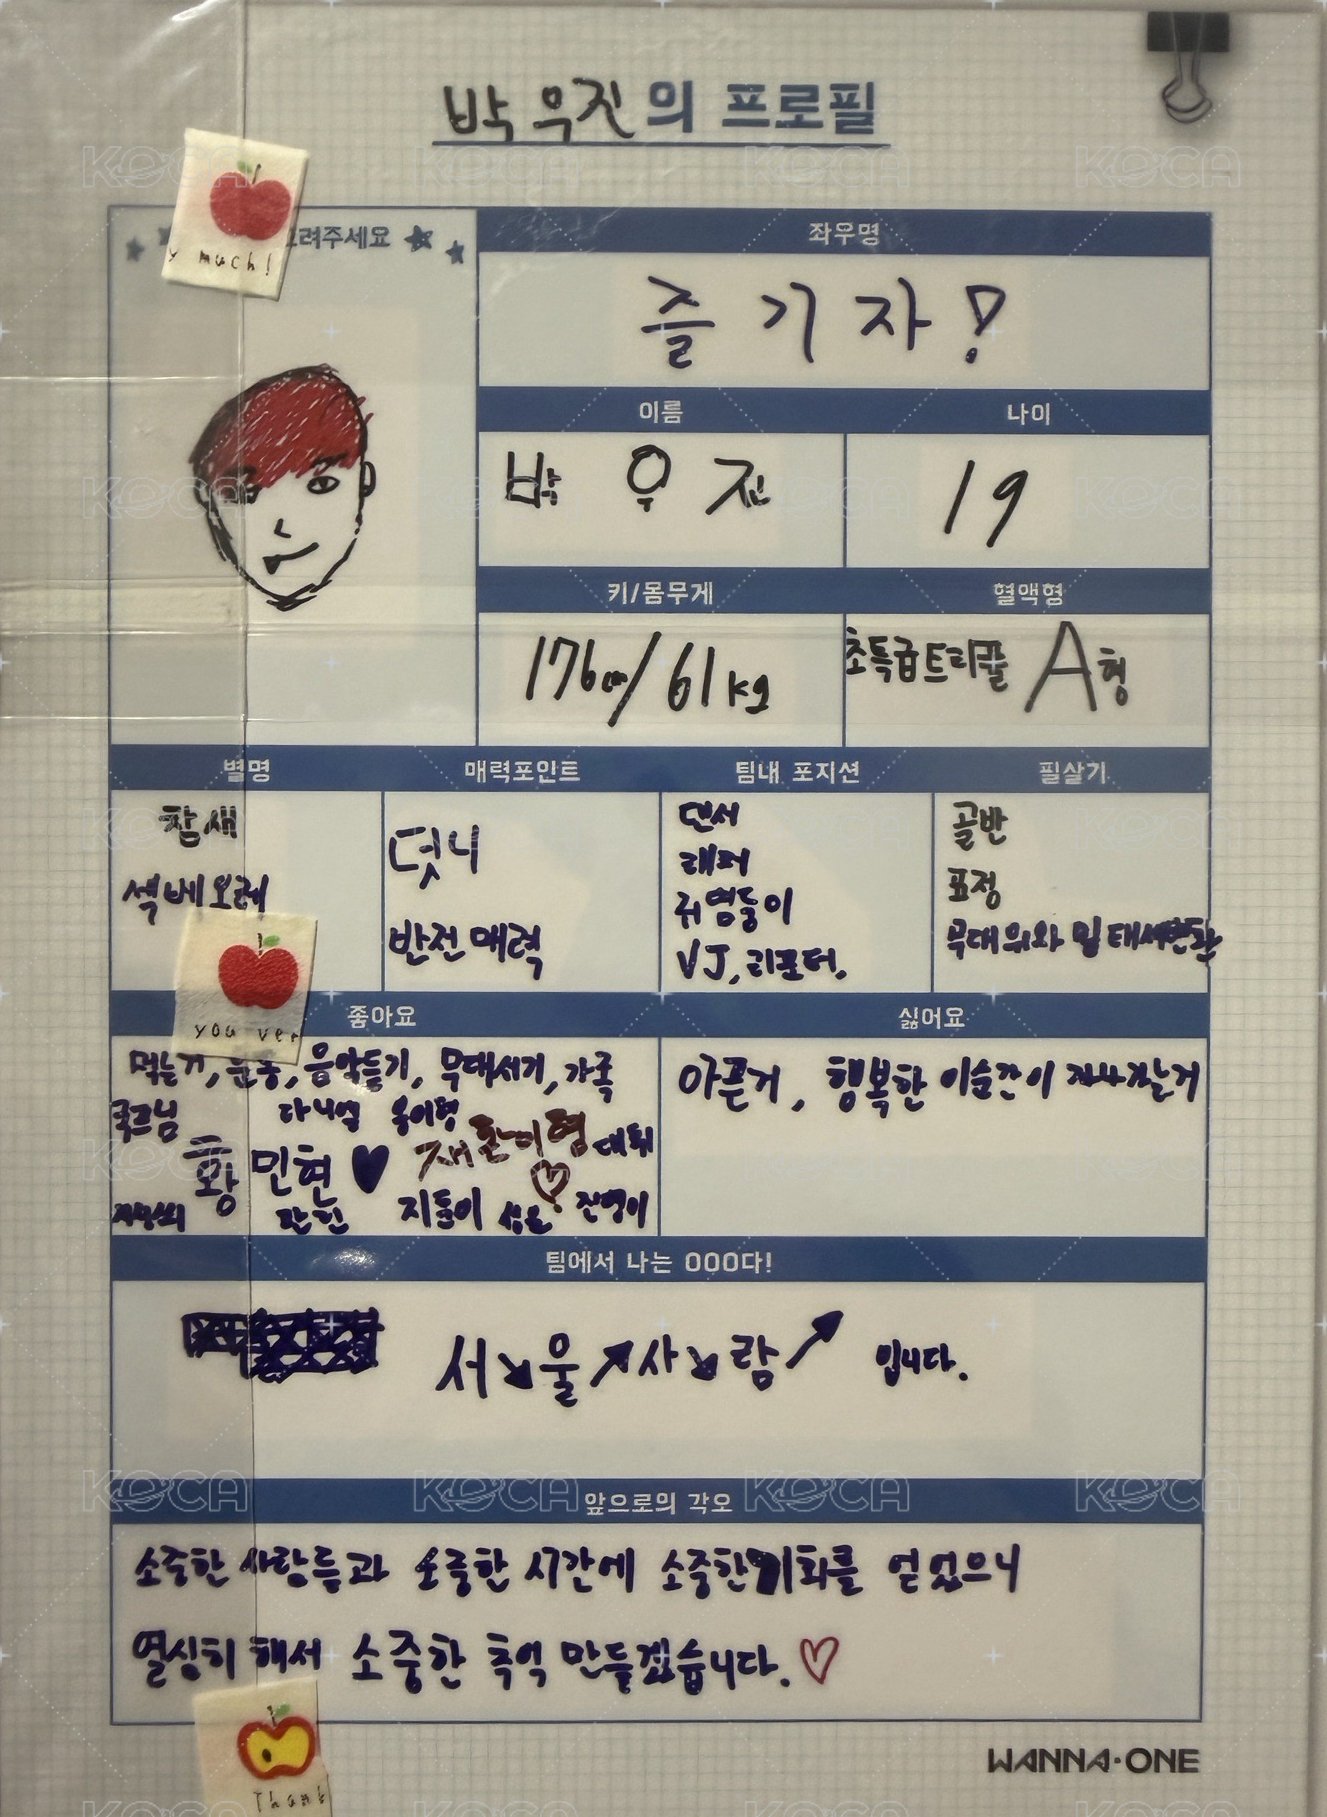 박우진의 프로필
려주세요
y much!
좌우명
즐기자!
이름
나이
박우진
19
키/몸무게
혈액형
176cm/61kg
초특급트리플 A형
별명
매력포인트
팀내 포지션
필살기
참새
섹베오레
덧니
반전매력
댄서
래퍼
귀염둥이
VJ, 리포터.
골반
표정
무대위와 밑 태세변환
you ver
좋아요
싫어요
먹는거, 운동, 음악듣기, 무대서기, 가족
국프님 다니엘 옹이형
황민현 재환이형 대휘
관린 지훈이 성운 진영이
아픈거, 행복한 이순간이 지나가는거
팀에서 나는 OOO다!
서↘울↗사↘람↗ 입니다.
앞으로의 각오
소중한 사람들과 소중한 시간에 소중한 기회를 얻었으니
열심히 해서 소중한 추억 만들겠습니다.♡
Thank
WANNA·ONE
KOCA